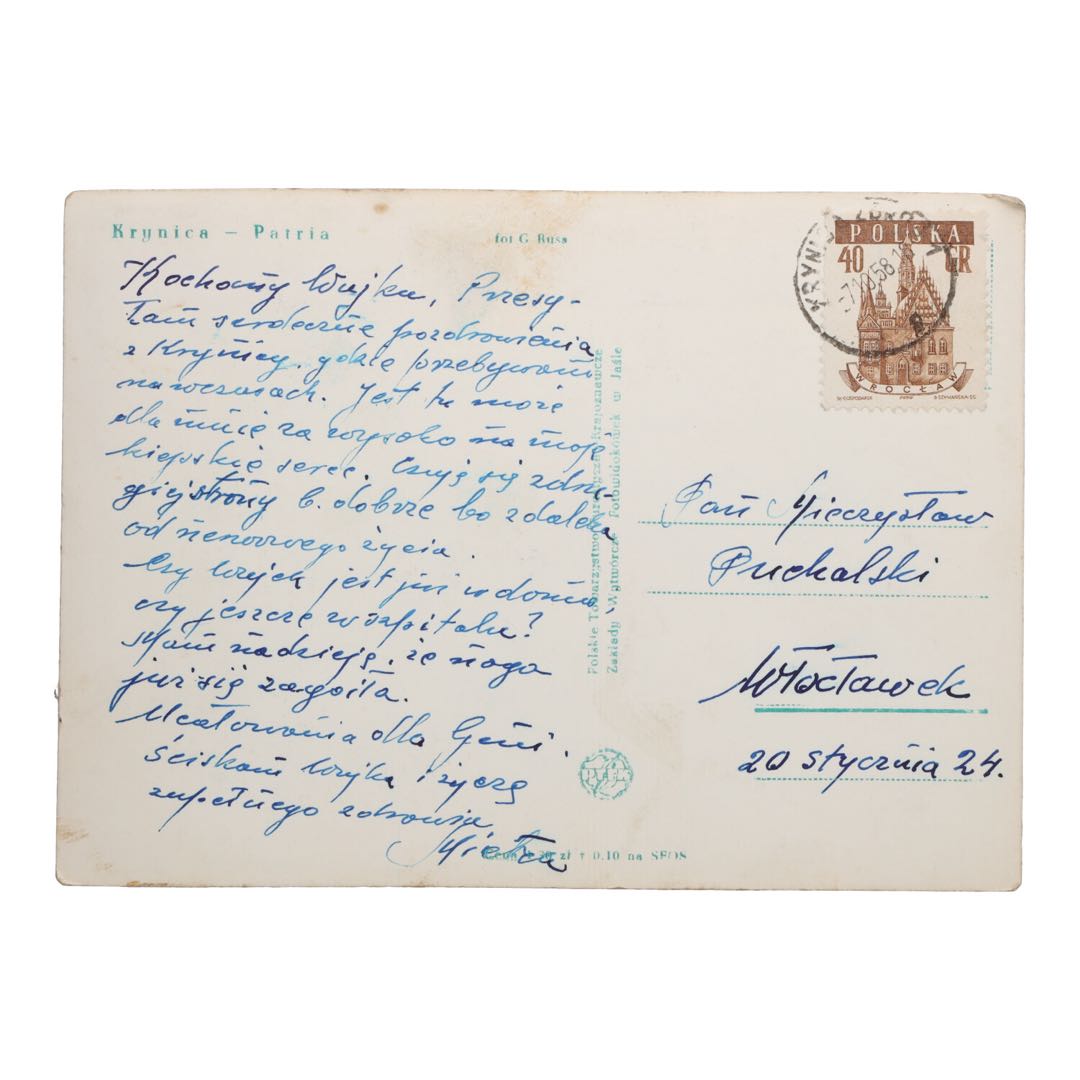 Krynica — Patria
fot G. Russ
Kochany Wujku, Przesy-
łam serdeczne pozdrowienia
z Krynicy, gdzie przebywam
na wczasach. Jest tu może
dla mnie za wysoko na moje
kiepskie serce. Czuję się z dru-
giej strony b. dobrze bo z daleka
od nerwowego życia.
Czy Wujek jest już w domu,
czy jeszcze w szpitalu?
Mam nadzieję, że noga
już się zagoiła.
Ucałowania dla Geni.
Ściskam Wujka i życzę
zupełnego zdrowia
Mietka
Polskie Towarzystwo Krajoznawcze
Zakłady Wytwórcze Fotowidokówek w Jaśle
PTTK
zł + 0.10 na SFOS
POLSKA
40 GR
WROCŁAW
-7.10.58
Pan Mieczysław
Puchalski
Włocławek
20 stycznia 24.